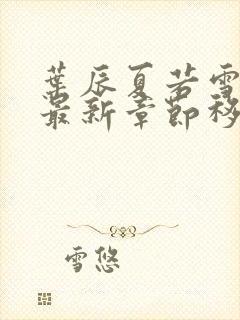 葉辰夏若雪
最新章節移
雪悠